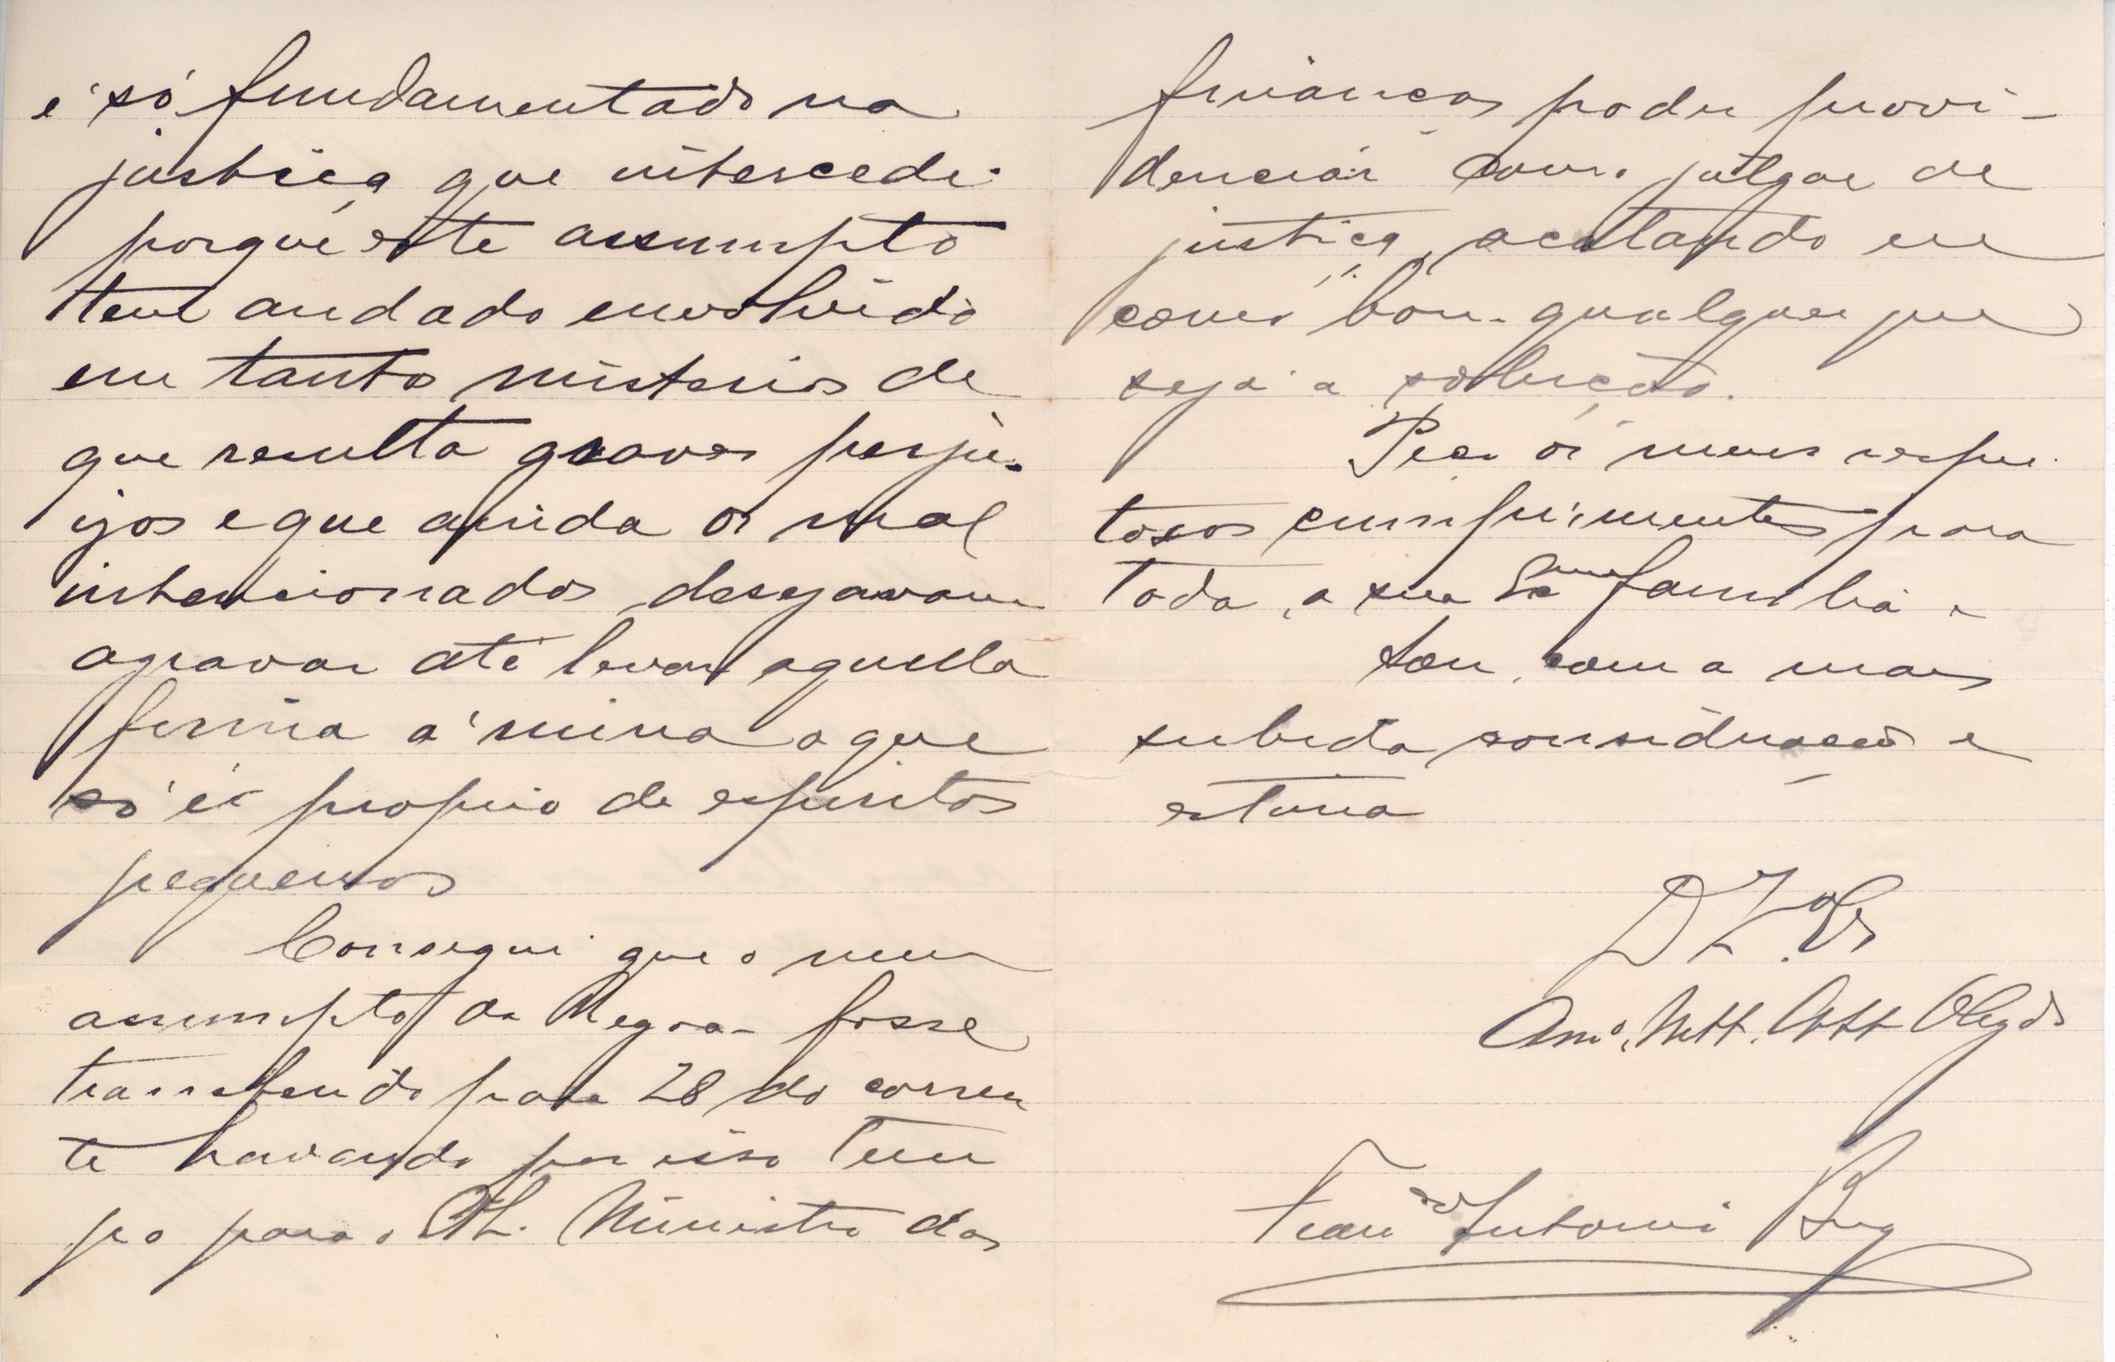 e só fundamentado na
justiça que intercedi
porque este assumpto
tem andado envolvido
em tanto misterios de
que resulta graves perjui-
zos e que ainda os mal
intencionados desejavam
agravar até levar aquella
firma á ruina o que
só é proprio de espiritos
pequenos
Consegui que o meu
assumpto da Regoa fosse
transferido para 28 do corren
te havendo por isso tem
po para o Ministro das
finanças poder provi-
denciar como julgar de
justiça, acatando eu
como bom qualquer que
seja a solução.
Peço os meus respei
tosos cumprimentos para
toda a sua Exma familia e
sou com a mais
subida consideração e
estima
De V. Exa
Amo. Mtt. Att Obrgdo
Franco Antonio